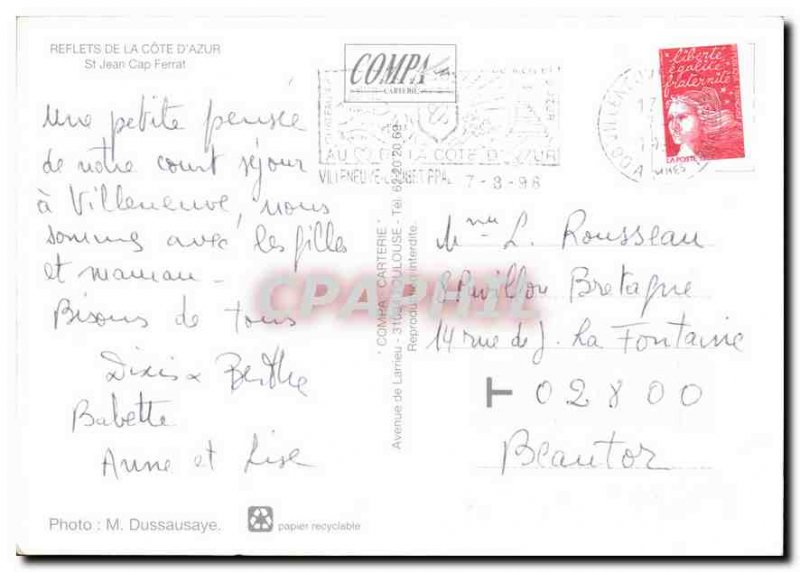 REFLETS DE LA CÔTE D'AZUR
St Jean Cap Ferrat
COMPA
CARTERIE
liberté
égalité
fraternité
LA POSTE
AU CŒUR DE LA COTE D'AZUR
VILLENEUVE-LOUBET PPAL 7-8-98
Une petite pensée
de notre court séjour
à Villeneuve, nous
sommes avec les filles
et maman -
Bisous de tous
Berthe
Babette
Anne et Lise
"COMPA CARTERIE"
Avenue de Larrieu - TOULOUSE - Tél.
Reproduction interdite.
CPAPHIL
Mme L. Rousseau
Pavillon Bretagne
14 rue de J. La Fontaine
T 02800
Beautor
Photo : M. Dussausaye.
papier recyclable